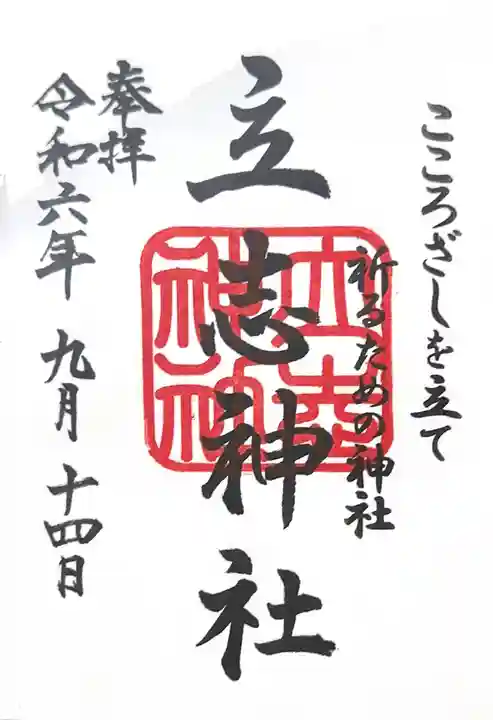 こころざしを立て
祈るための神社
立志神社
立志
神社
奉拝
令和六年 九月 十四日